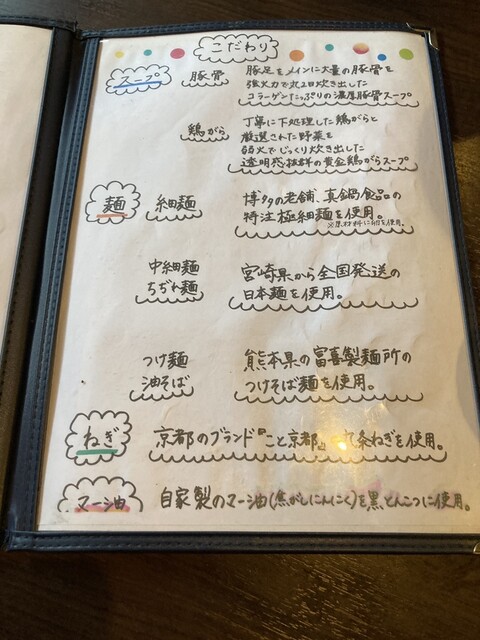 こだわり
スープ
豚骨
豚足をメインに大量の豚骨を
強火力で丸2日炊き出した
コラーゲンたっぷりの濃厚豚骨スープ
鶏がら
丁寧に下処理した鶏がらと
厳選された野菜を
弱火でじっくり炊き出した
透明感抜群の黄金鶏がらスープ
麺
細麺
博多の老舗、真鍋食品の
特注極細麺を使用。
※原材料に卵を使用。
中細麺
ちぢれ麺
宮崎県から全国発送の
日本麺を使用。
つけ麺
油そば
熊本県の富喜製麺所の
つけそば麺を使用。
ねぎ
京都のブランド『こと京都』九条ねぎを使用。
マー油
自家製のマー油(焦がしにんにく)を黒とんこつに使用。